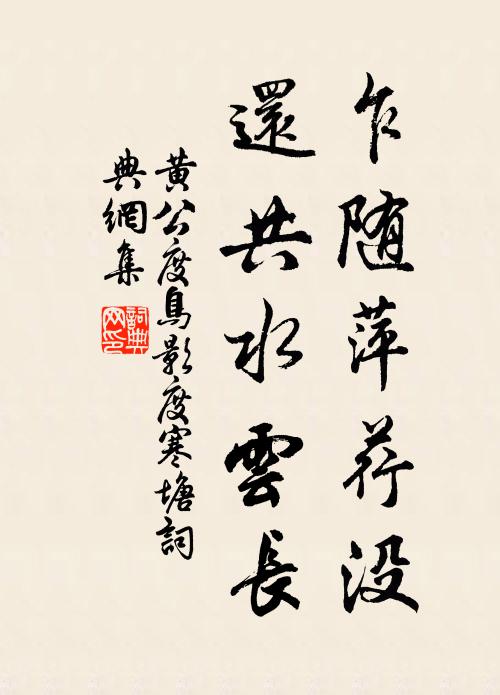 乍随萍荇没
還共水雲長
黄公度鳥影度寒塘詞
典網集
詞典网印